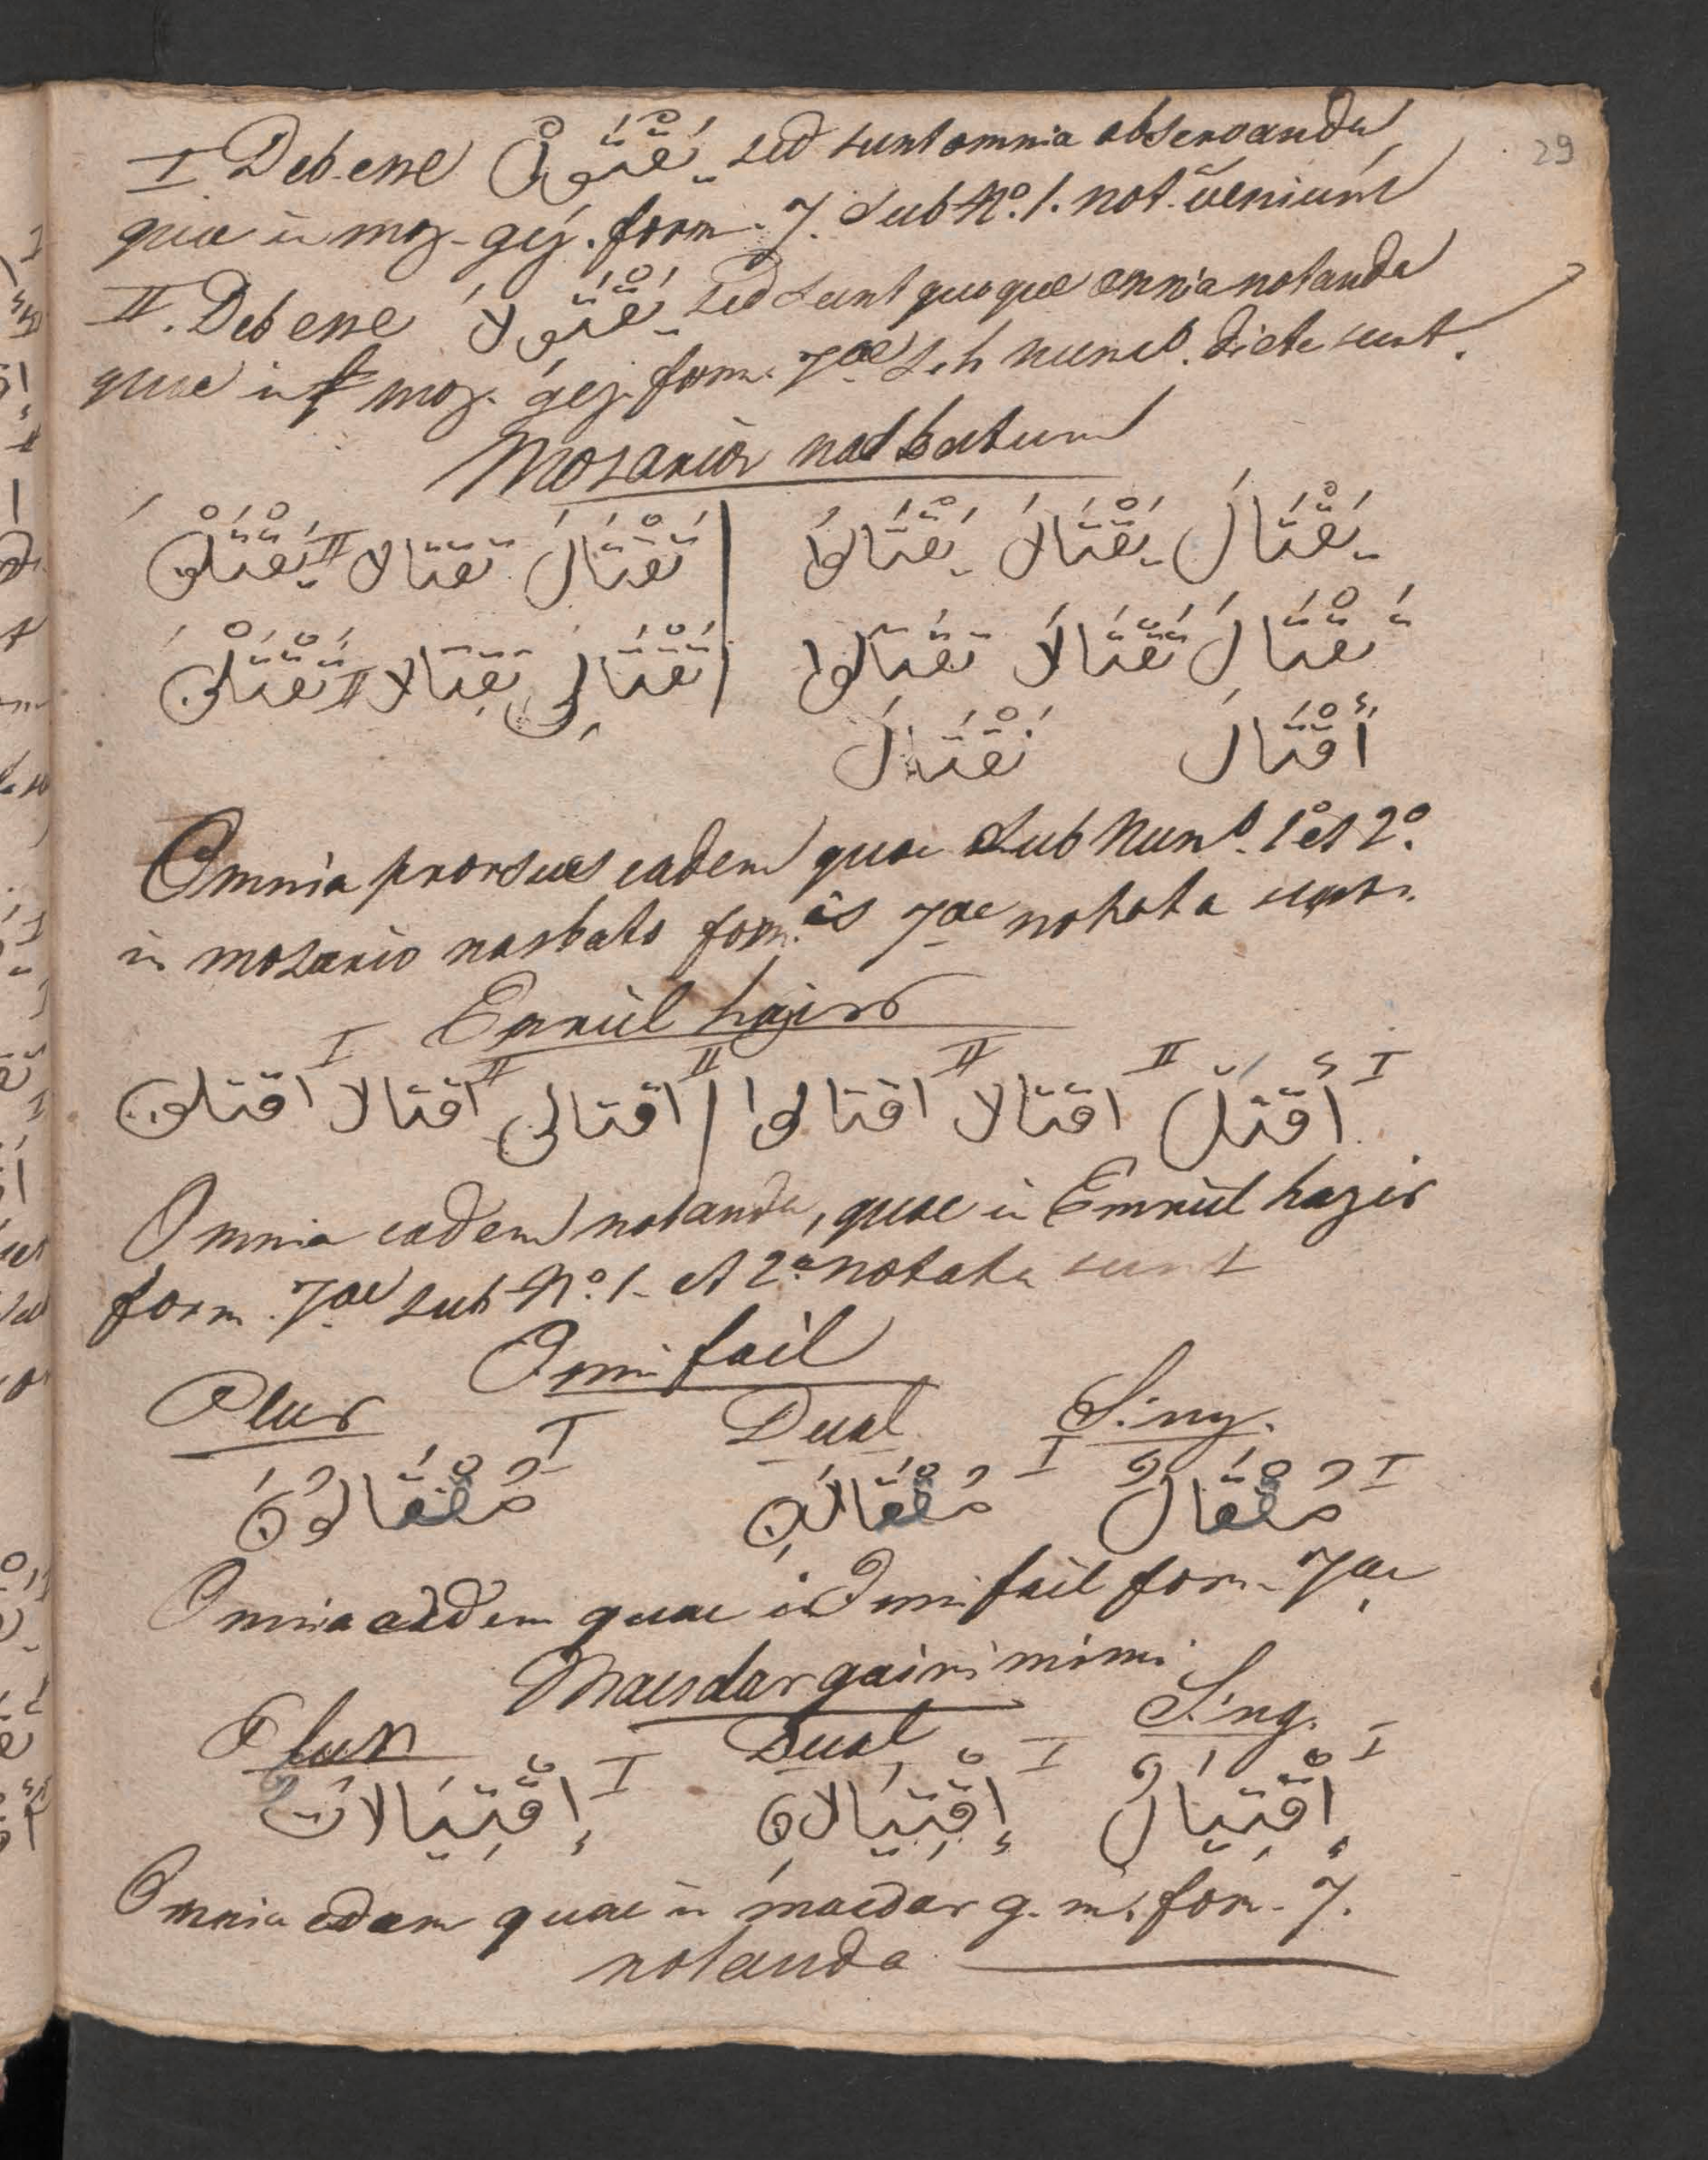 29
I Deb. esse يَقْتَوِلْ sed sunt omnia observanda
quae in moz. gej. form. 7. sub No. 1. not. veniunt
II. Deb esse يَقْتَوِلَا sed sunt quoque omnia notanda
quae in moz. gej. form. 7ae sub num. dicta sunt.
Mozarior nasbatum
يَقْتَالَ يَقْتَالَا يَقْتَالُوا | تَقْتَالَ تقتالا II يَقْتَلْنَ
تَقْتَالَ تَقْتَالَا تقتالوا | تَقْتَالِى تقتالا II تَقْتَلْنَ
أَقْتَالَ نَقْتَالَ
Omnia prorsus eadem quae sub Num. 1o et 2o.
in mozario nasbato form. is 7ae notata sunt.
Emriül hazir
I أقتل II اقتالا II اقتالوا | II اقتالى II اقتالا I اقتلن
Omnia eadem notanda, quae in Emriül hazir
form. 7ae sub No. 1. et 2a notata sunt
Ismi fail
Plur Dual Sing.
I مُقْتَالٌ I مُقْتَالَانِ I مُقْتَالُونَ
Omnia eadem quae in Ismi fail form. 7ae
Masdar gairi mimi
Plur Dual Sing.
I إِقْتِيَالٌ I إِقْتِيَالَانِ I إِقْتِيَالَاتٌ
Omnia eadem quae in masdar g. m. form. 7.
notanda